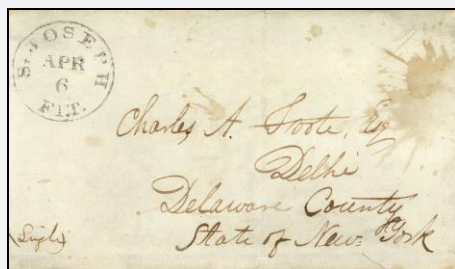 ST. JOSEPH
APR
6
Fl.T.
Charles A. Foote, Esq
Delhi
Delaware County
State of New York
(Single)